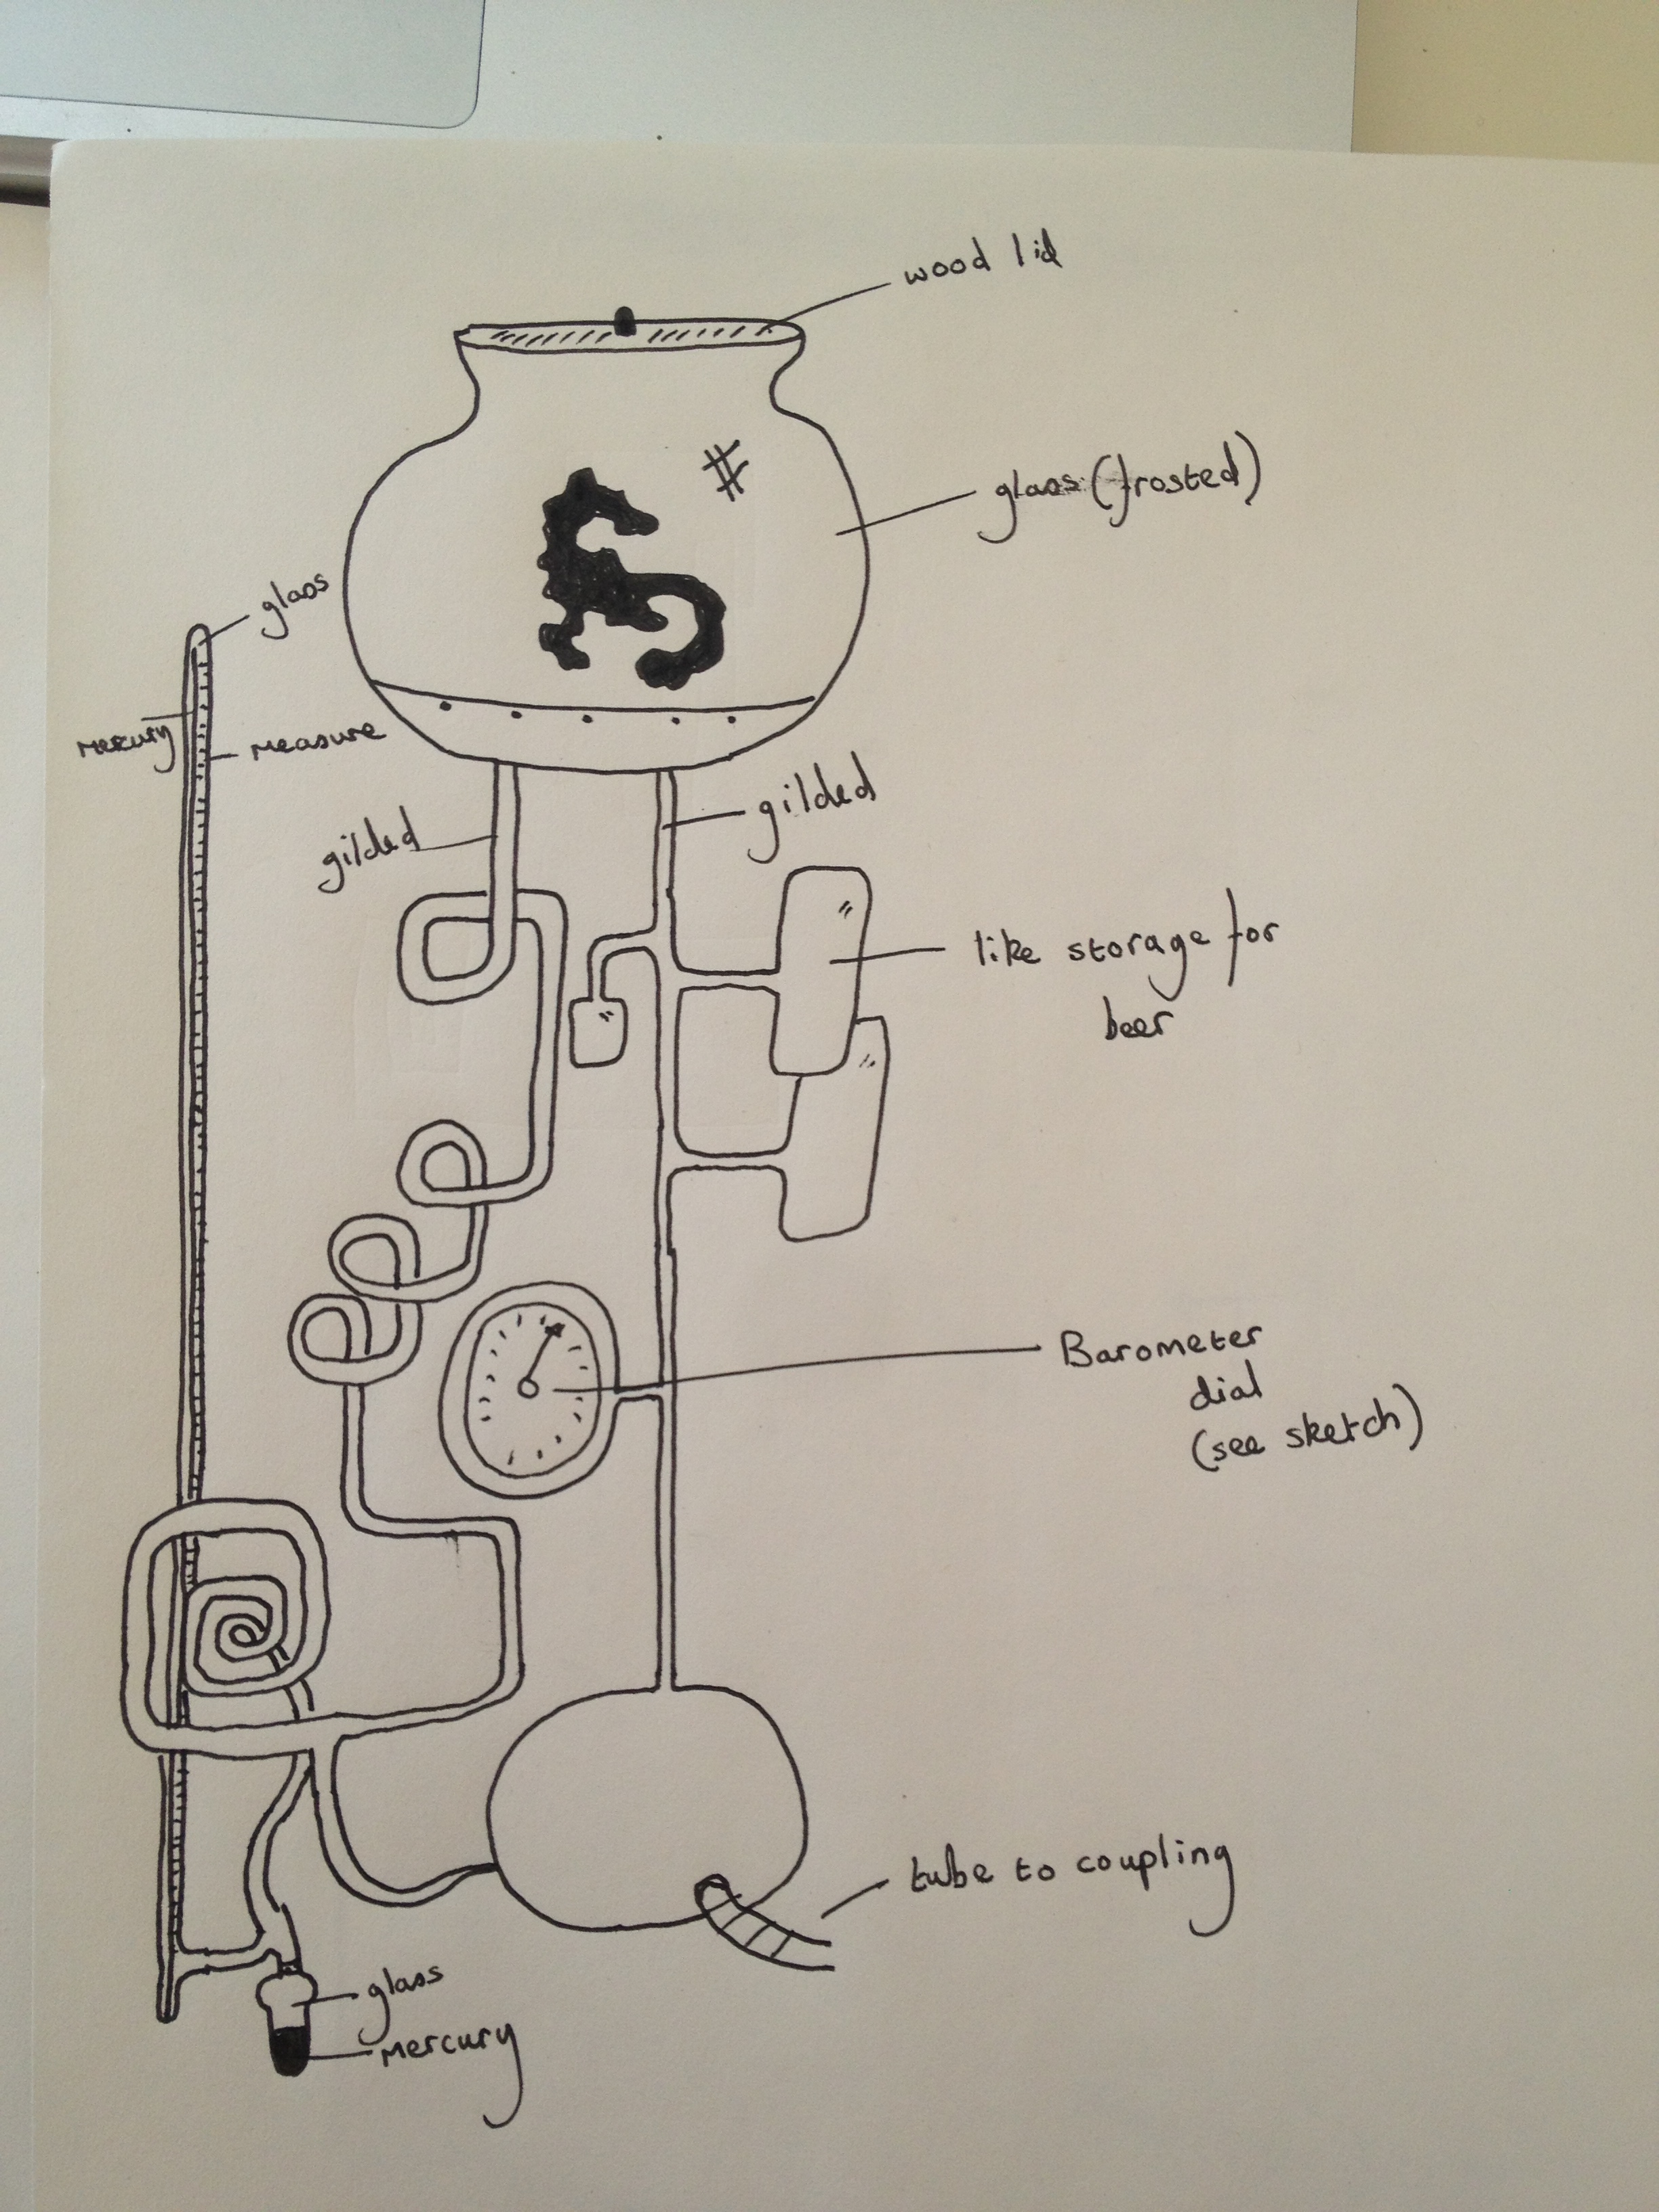 wood lid
glass (frosted)
glass
mercury
measure
gilded
gilded
like storage for
beer
Barometer
dial
(see sketch)
tube to coupling
glass
mercury